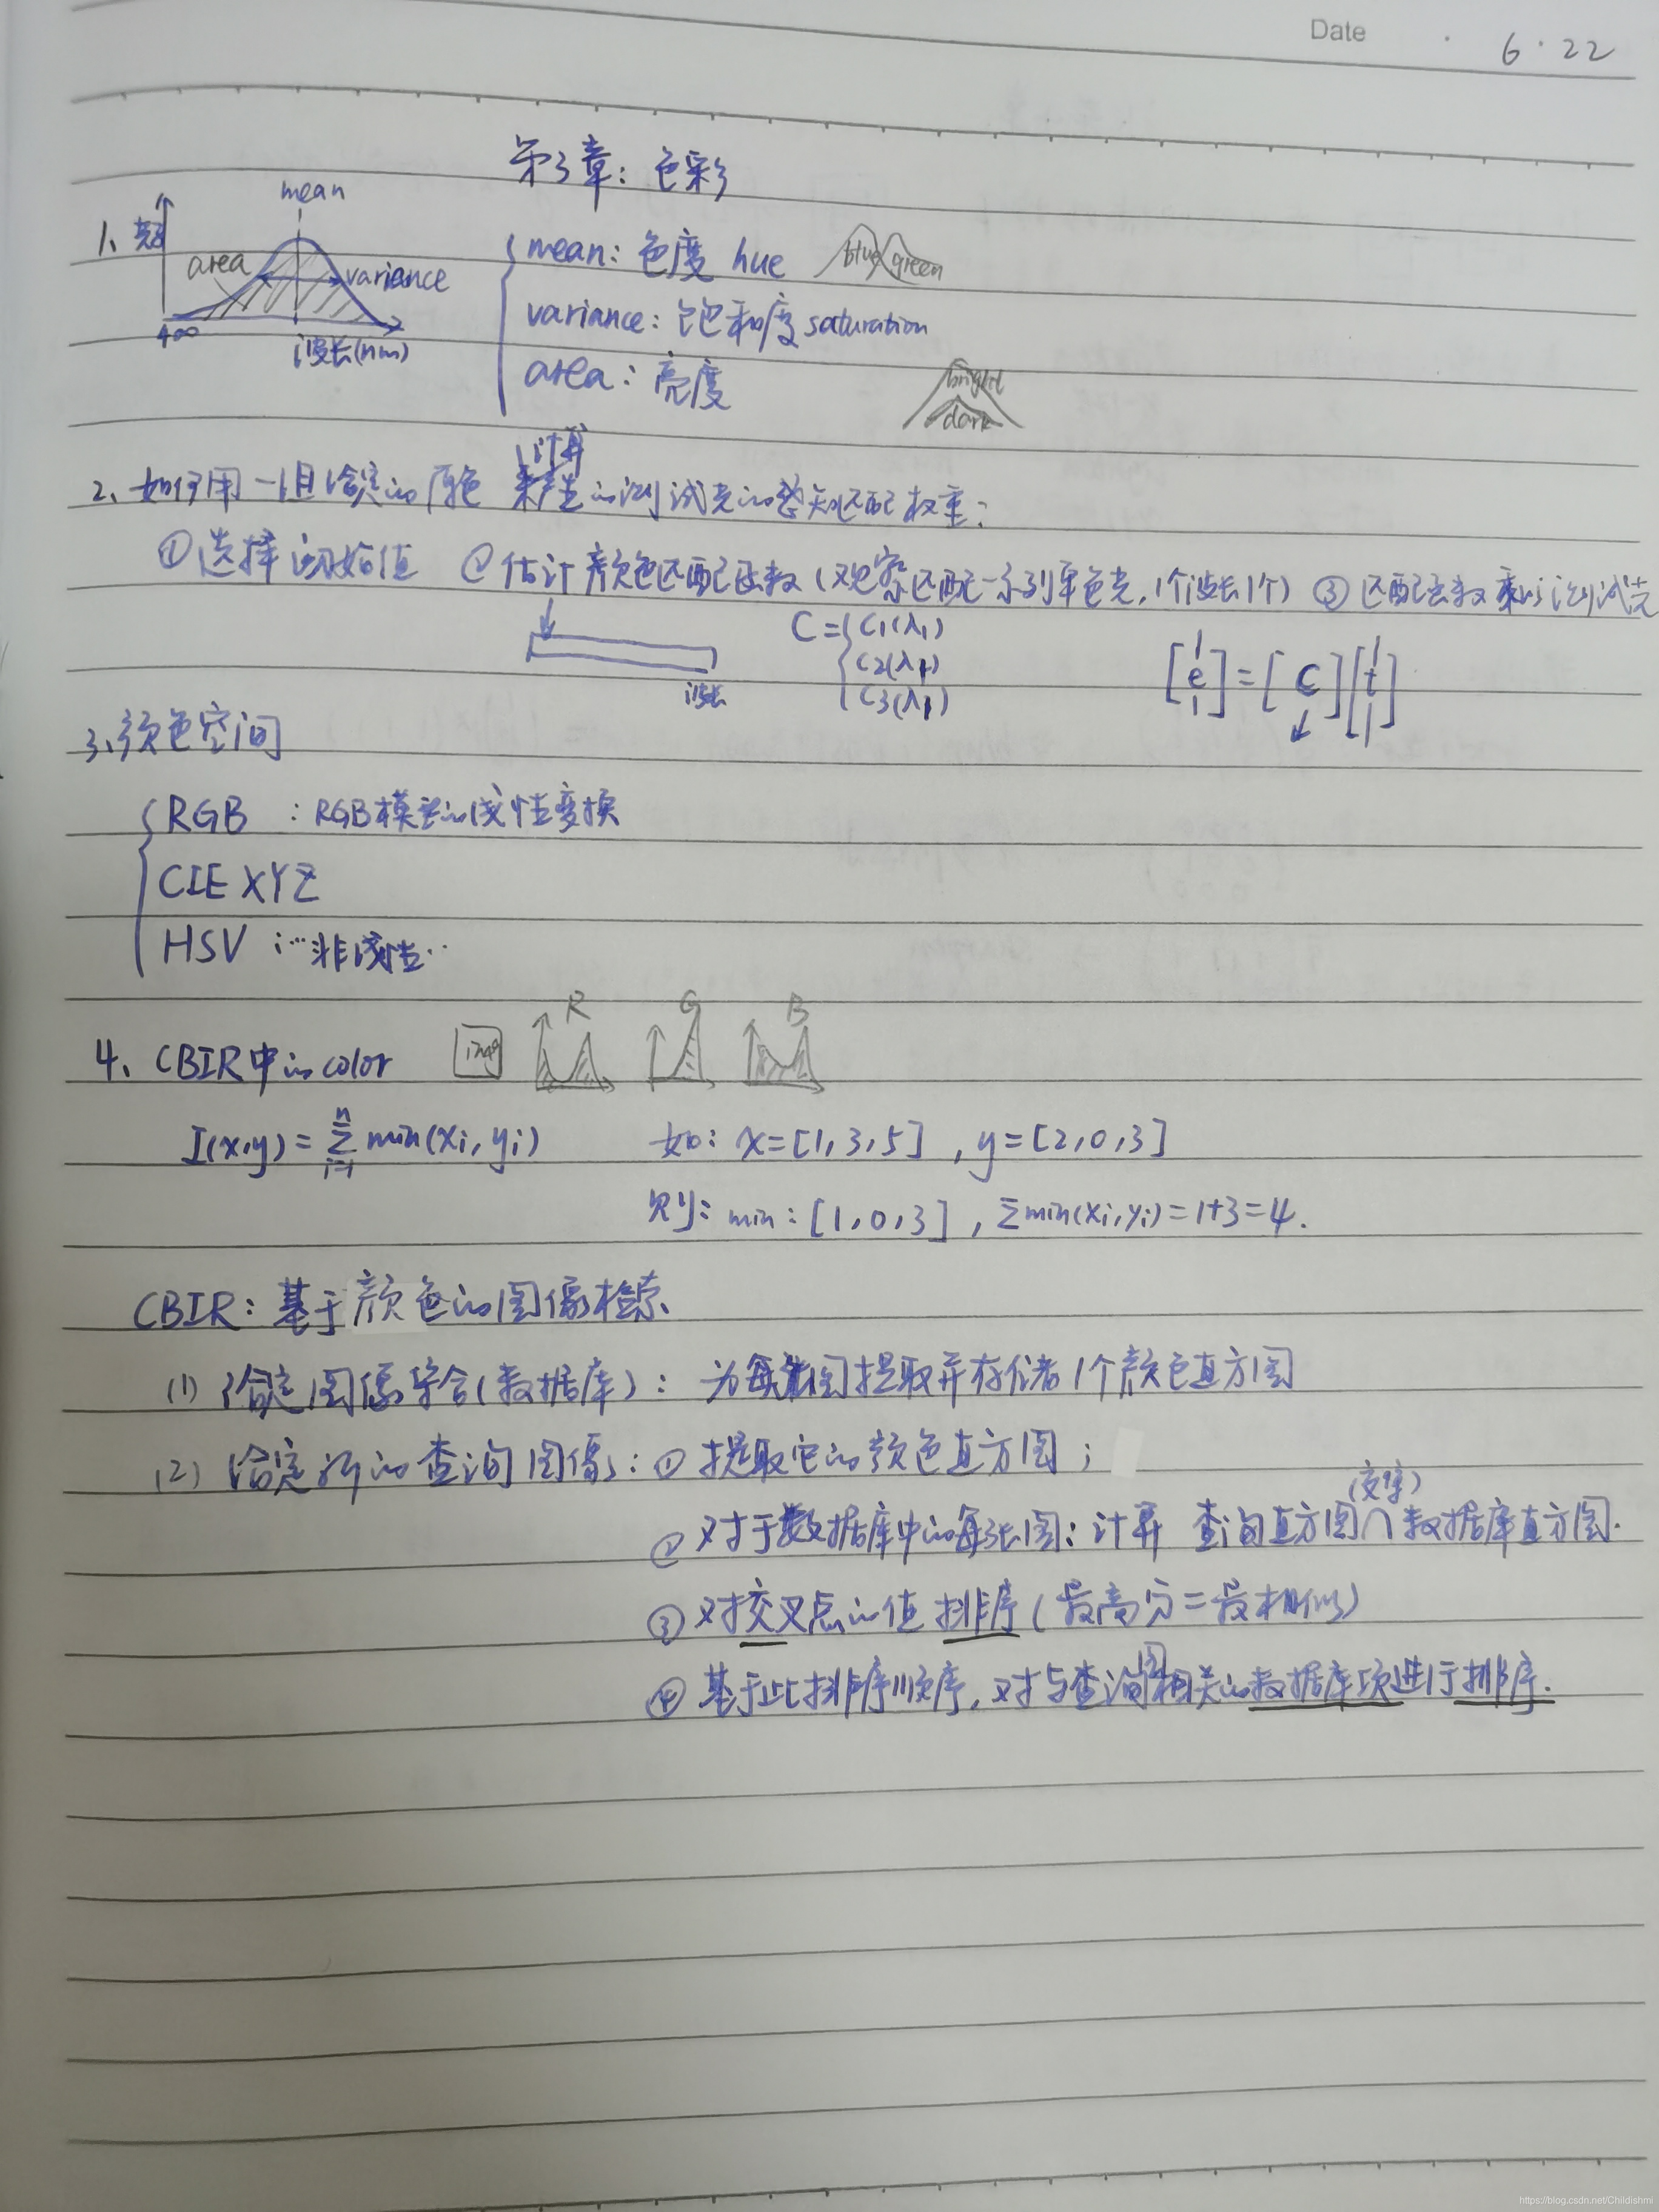 Date 6·22
第3章：色彩
mean
1、
area
variance
400
波长(nm)
mean：色度 hue
blue green
variance：饱和度 saturation
area：亮度
bright
dark
计算
2、如何用一组给定的原色来产生的测试光的感知匹配权重：
①选择初始值 ②估计颜色匹配函数(观察匹配一系列单色光，1个波长1个) ③匹配函数乘以测试光
波长
C={c1(λ1)
c2(λ1)
c3(λ1)
[e]=[C][t]
3、颜色空间
RGB ：RGB模型的线性变换
CIE XYZ
HSV ：…非线性…
4、CBIR中的color img R G B
I(x,y)=Σ(i=1→n) min(xi, yi) 如：x=[1,3,5] ,y=[2,0,3]
则：min：[1,0,3] ,Σmin(xi,yi)=1+3=4.
CBIR：基于颜色的图像检索
(1)给定图像集合(数据库)：为每张图提取并存储1个颜色直方图
(2)给定新的查询图像：①提取它的颜色直方图；
②对于数据库中的每张图：计算 查询直方图∩数据库直方图.
③对交叉点的值排序(最高分=最相似)
④基于此排序顺序，对与查询图相关的数据库项进行排序.
https://blog.csdn.net/Childishmi